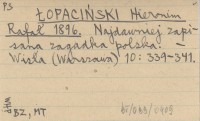 PS
ŁOPACIŃSKI Hieronim
Rafał 1896. Najdawniej zapi-
sana zagadka polska. -
Wisła (Warszawa) 10: 339-341.
BZ, MT